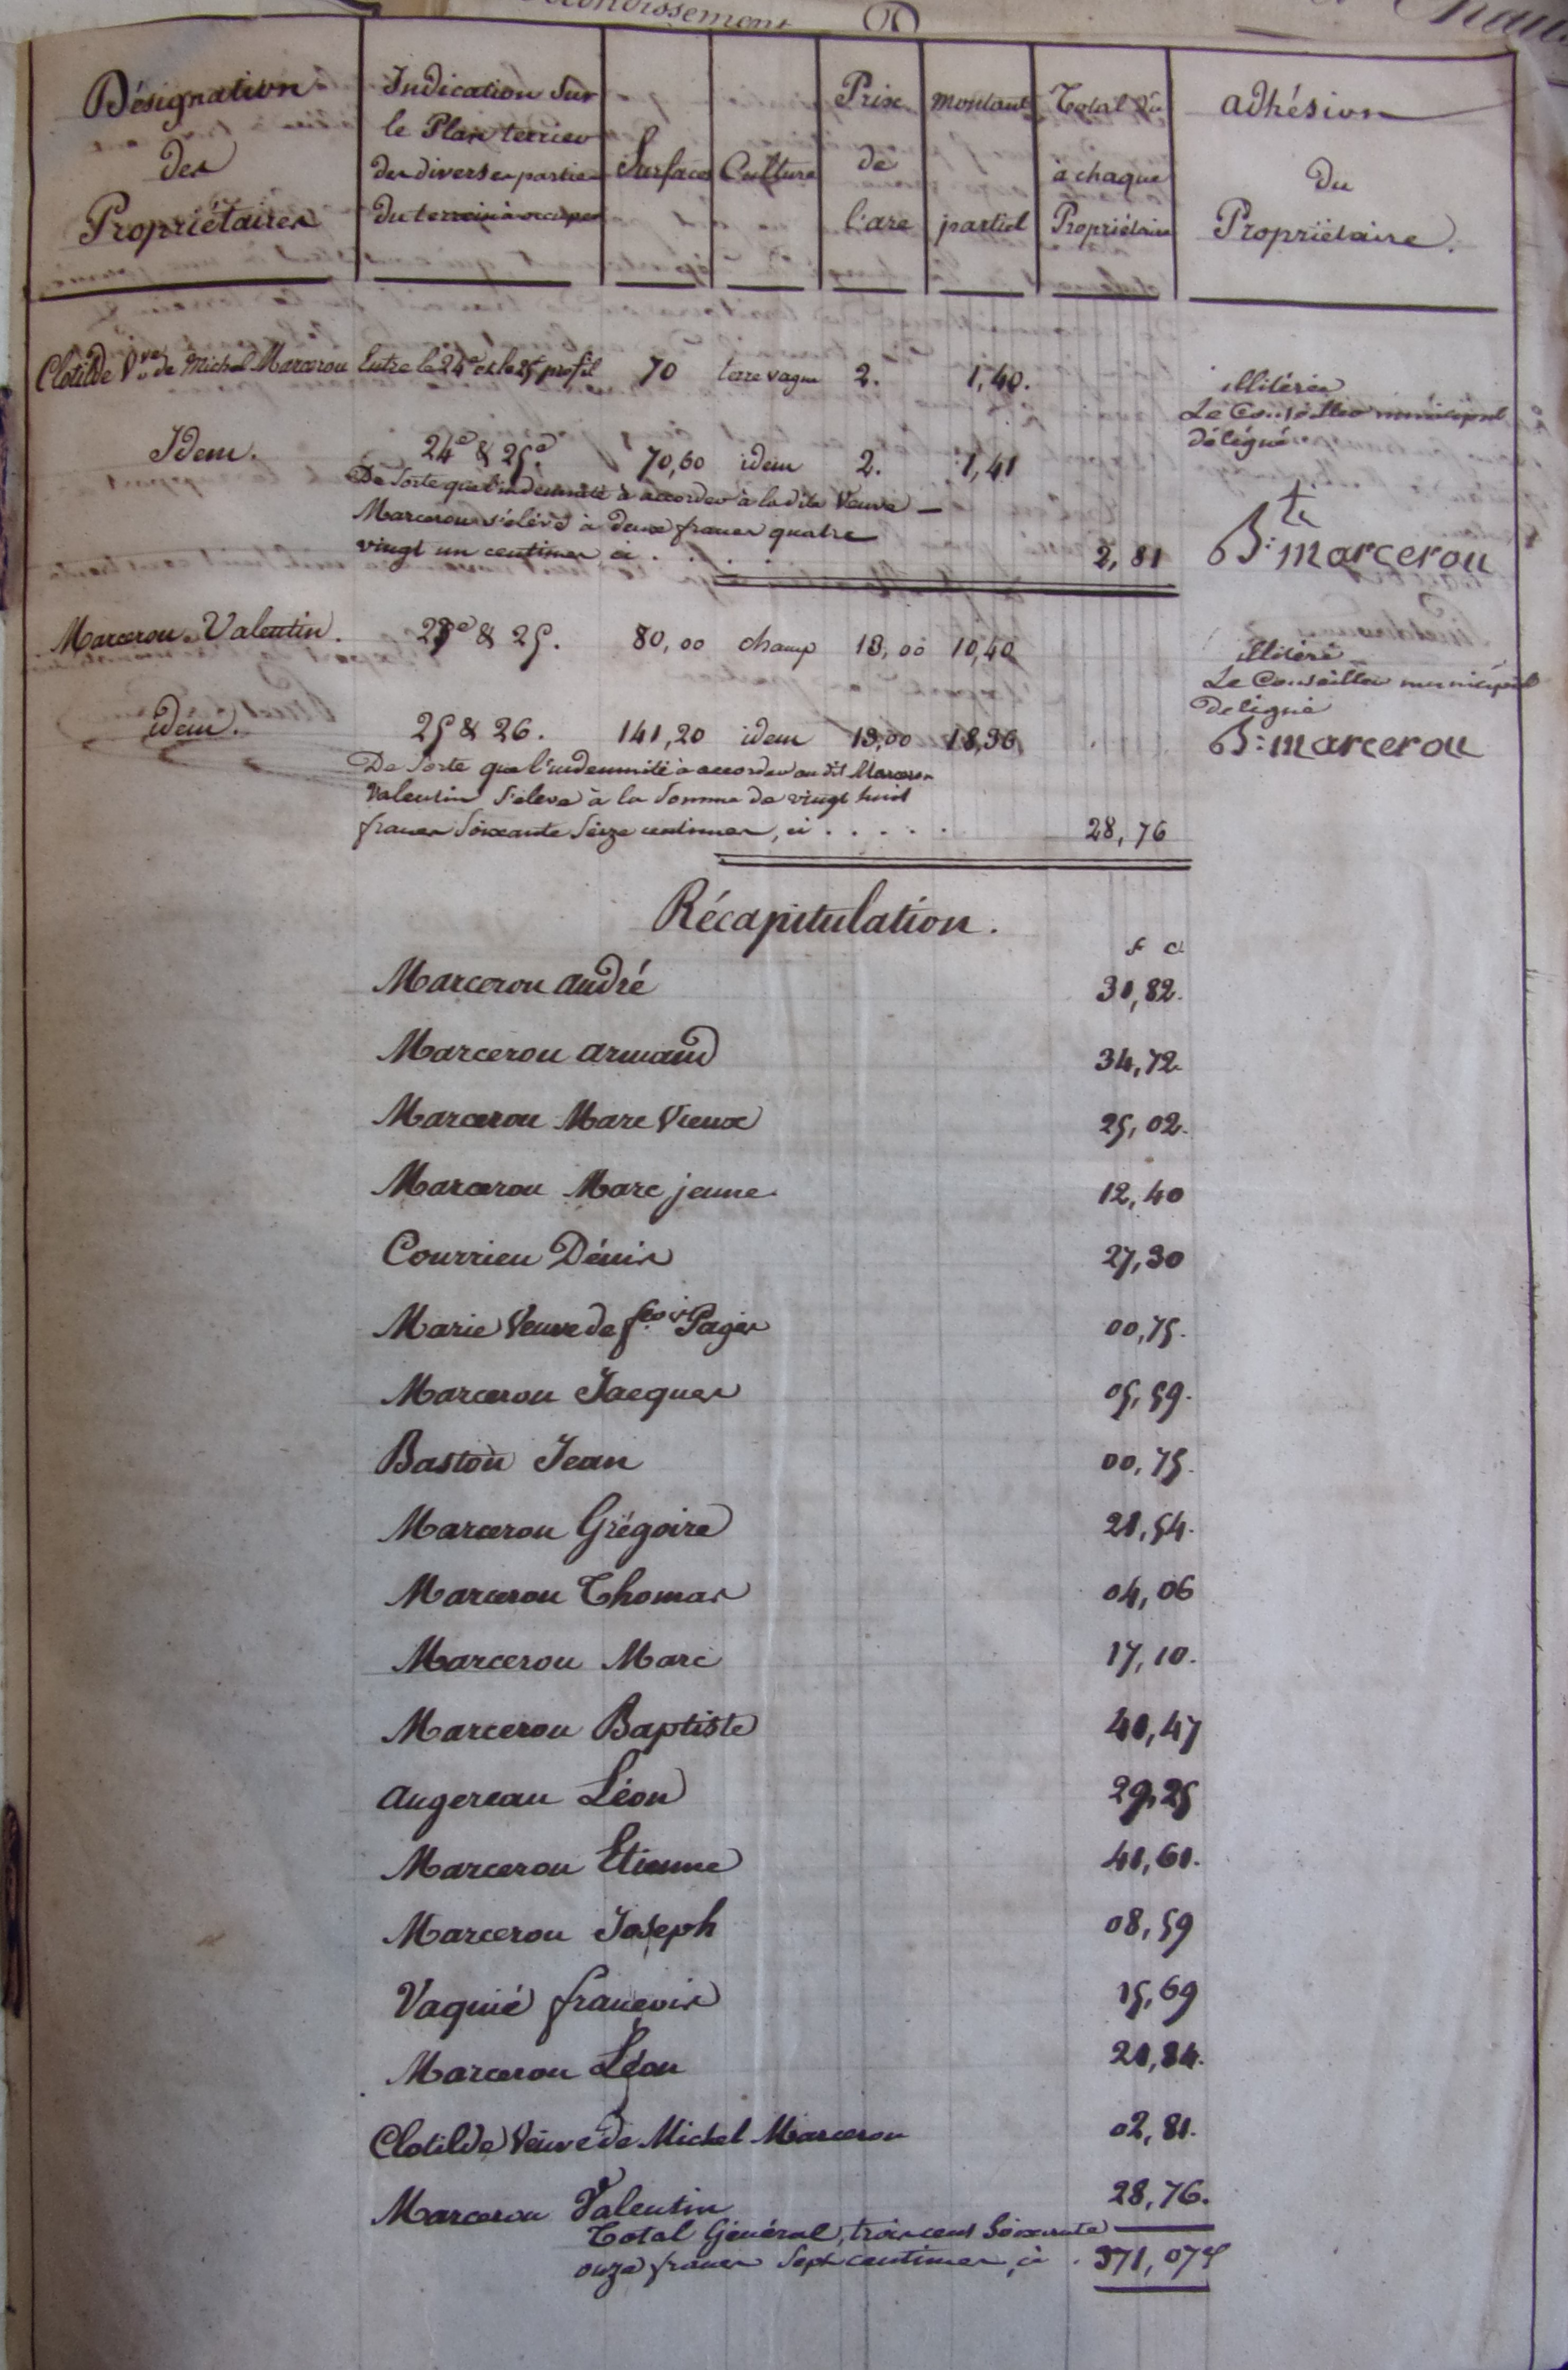 Désignation des Propriétaires
Indication sur le Plan terrier des diverses parties du terrein à occuper
Surfaces
Culture
Prix de l'are
montant partiel
Total dû à chaque Propriétaire
adhésion du Propriétaire.
Clotilde Vve de Michel Marcerou Entre le 24e et le 25e profil 70 terre vague 2. 1,40.
illitérée
Le Conseiller municipal
délégué
Idem. 24e & 25e 70,60 idem 2. 1,41
De sorte que l'indemnité à accorder à la dite Veuve
Marcerou s'élève à deux francs quatre
vingt un centimes, ci . . . . 2,81
Bte marcerou
Marcerou Valentin. 25e & 25. 80,00 champ 13,00 10,40
illitéré
Le Conseiller municipal
deligué
idem. 25 & 26. 141,20 idem 13,00 18,36
B: marcerou
De sorte que l'indemnité à accorder au dit Marcerou
Valentin s'eleve à la somme de vingt huit
francs soixante seize centimes, ci . . . . . 28,76
Récapitulation.
f c
Marcerou andré 30,82.
Marcerou armand 34,72.
Marcerou Marc Vieux 25,02.
Marcerou Marc jeune 12,40
Courrieu Dénis 27,30
Marie Veuve de fcois Pagès 00,75.
Marcerou Jacques 05,59.
Bastou Jean 00,75.
Marcerou Grégoire 21,54.
Marcerou Thomas 04,06
Marcerou Marc 17,10.
Marcerou Baptiste 40,47
augereau Léon 29,25
Marcerou Etienne 41,61.
Marcerou Joseph 08,59
Vaquié françois 15,69
Marcerou Léon 21,84.
Clotilde Veuve de Michel Marcerou 02,81.
Marcerou Valentin 28,76.
Total Général, trois cent soixante
onze francs sept centimes, ci . 371,07c